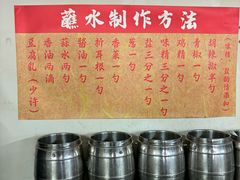 蘸水制作方法
(味精、鼓韵结南和)
胡辣椒半勺
青椒一勺
鸡精一勺
味精三分之一勺
盐三分之一勺
葱一勺
香菜一勺
折耳根一勺
酱油一勺
蒜水两勺
香油两滴
豆腐乳(少许)